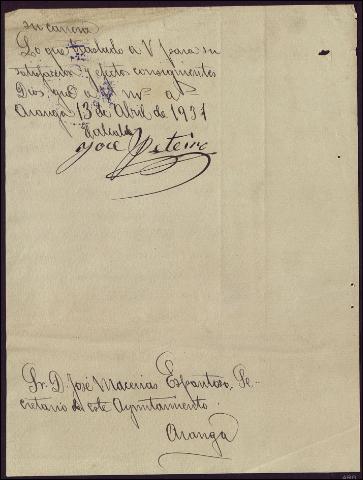 su carrera
Lo que traslado a V para su
satisfacción y efectos consiguientes
Dios gue a V mº aº
Aranga 13 de Abril de 1931
El alcalde
José Peteiro
Sr. D. José Macenias Espantoso, Se-
cretario de este Ayuntamiento
Aranga